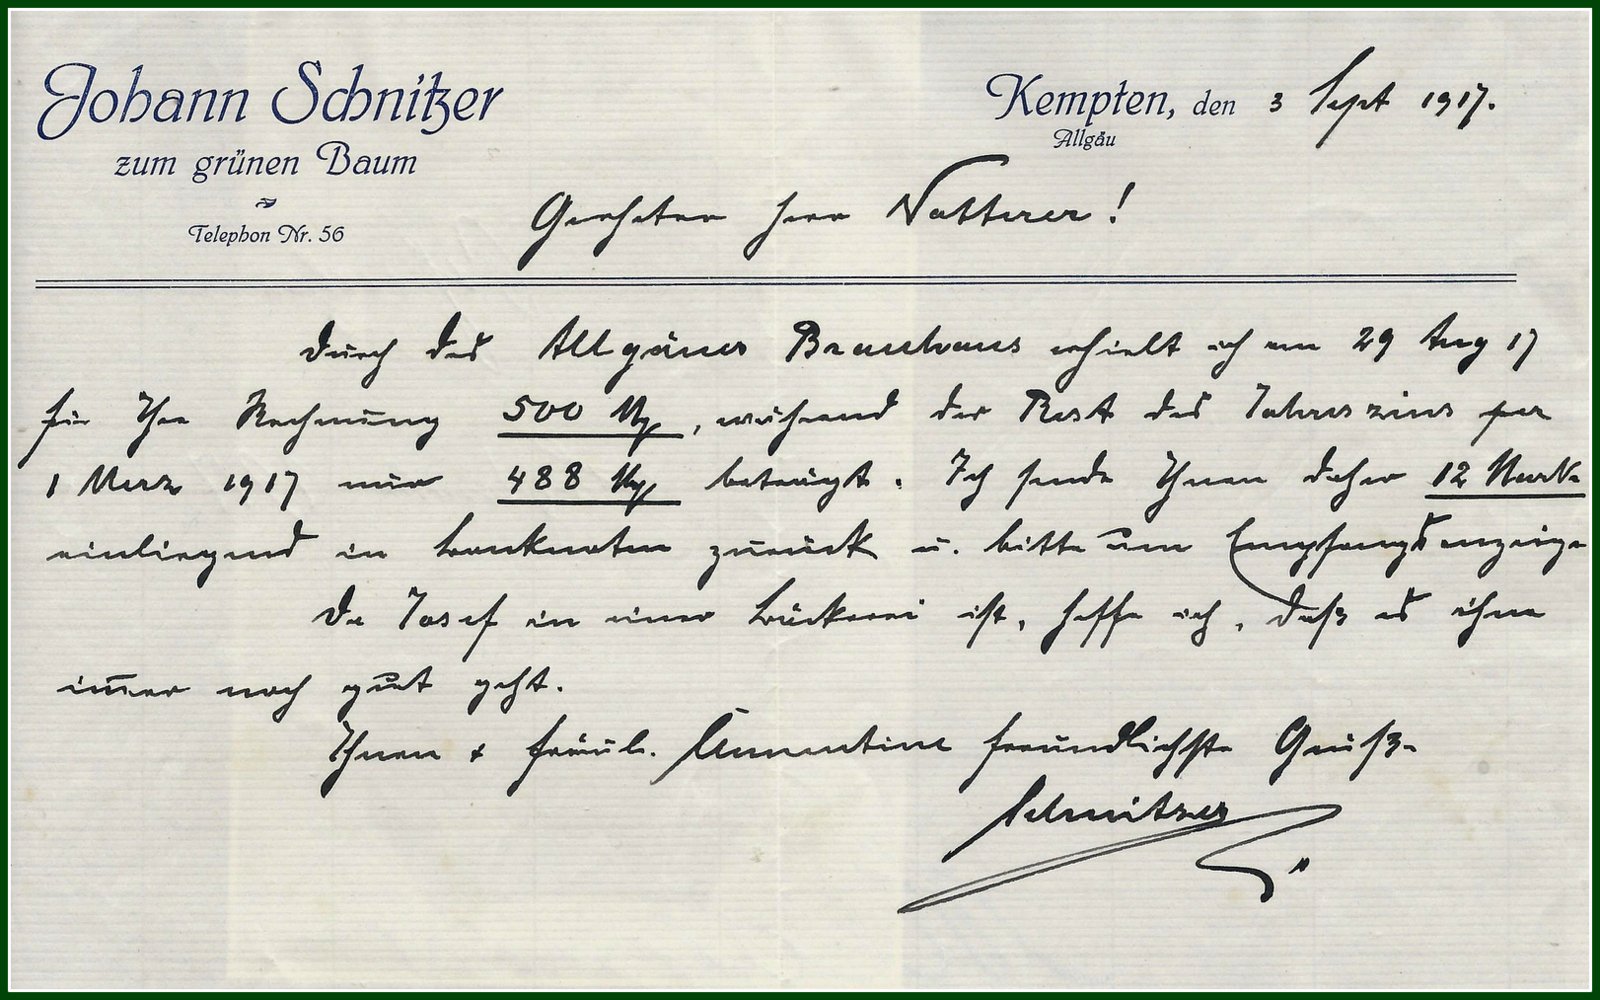 Johann Schnitzer
zum grünen Baum
Telephon Nr. 56
Kempten, den 3 Sept 1917.
Allgäu
Geehrter Herr Natterer!
Durch das Allgäuer Brauhaus erhielt ich am 29 Aug 17
für Ihre Rechnung 500 M, während der Rest des Jahreszins per
1 Merz 1917 nur 488 M beträgt. Ich sende Ihnen daher 12 Mark
einliegend in Banknoten zurück u. bitte um Empfangsanzeige
Da Josef in einer Bäckerei ist, hoffe ich, daß es ihm
im̅er noch gut geht.
Ihnen + Fräul. freundlichste Grüße
Schnitzer